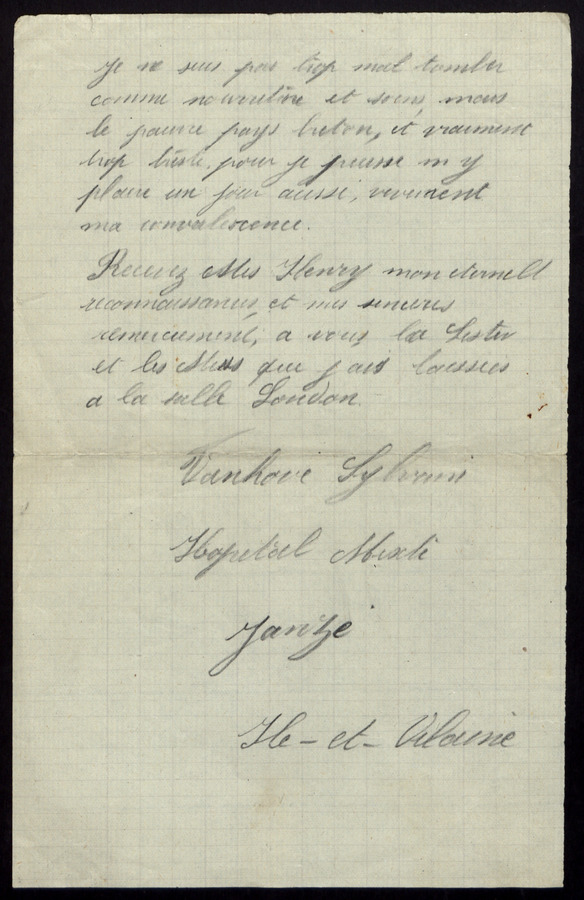 Je ne suis pas trop mal tomber
comme nourriture et soins, mais
le pauvre pays breton, et vraiment
trop triste, pour je puisse m y
plaire un jour aussi, vivement
ma convalescence.
Recevez Miss Henry mon eternell
reconnaissances, et mes sinceres
remerciement, a vous la Sister
et les Miss que j ais laissées
a la salle London.
Vanhove Sylvain
Hopital Mixte
Janzé
Ile-et-Vilaine